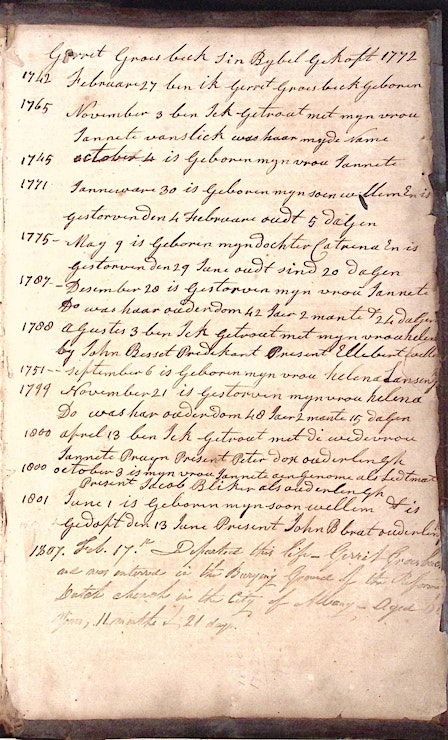 Gerrit Groesbeek Sin Bybel Gekoft 1772
1742 Februare 27 ben ik Gerrit Groesbeek geboren
1765 November 3 ben Ick Getrout met myn vrou
Jannete vanslick was haar myde Name
1745 october 4 is Geboren myn vrou Jannete
1771 Janneware 30 is Geboren myn soen willem En is
Gestorven den 4 Februare oudt 5 dagen
1775 - May 9 is Geboren myn dochter Catrena En is
Gestorven den 29 June oudt sind 20 dagen
1787 - Desember 28 is Gestorven myn vrou Jannete
Do was haar ouderdom 42 Jaer 2 mante & 24 dagen
1788 agustes 3 ben Ick Getrout met myn vrou helena
by John Basset Predikant Present Ellebert
1751 -- september 6 is Geboren myn vrou helena Lansen
1799 November 21 is Gestorven myn vrou helena
Do was har ouderdom 48 Jaer 2 mante 15 dagen
1800 april 13 ben Ick Getrout met de wedevrou
Jannete Pruyn Present Peter dox ouderlengh
1800 october 3 is myn vrou Jannete angenome als Ledtmaet
Present Jacob Bliker als ouderlengh
1801 June 1 is Geboren myn soon wellem & is
Gedopt den 13 June Present John B brat ouderlen
1807. Feb. 17.th Departed this life - Gerrit Groesbeeck
and was interred in the Burying Ground of the Reform
Dutch Church in the City of Albany - Aged
Years, 11 months & 21 days.